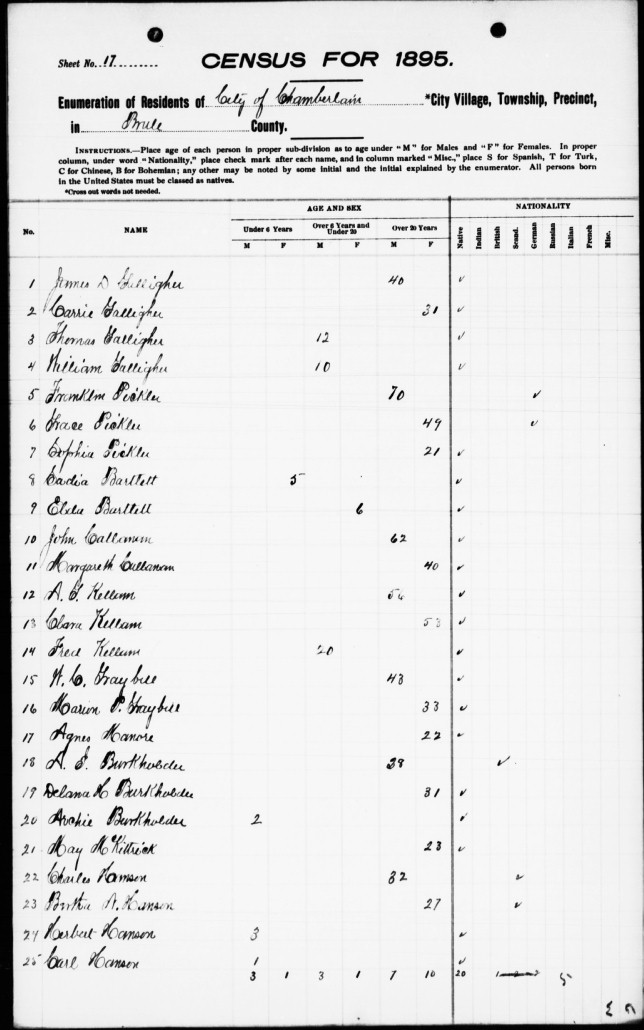 Sheet No. 17
CENSUS FOR 1895.
Enumeration of Residents of City of Chamberlain *City Village, Township, Precinct,
in Brule County.
INSTRUCTIONS.—Place age of each person in proper sub-division as to age under "M" for Males and "F" for Females. In proper
column, under word "Nationality," place check mark after each name, and in column marked "Misc.," place S for Spanish, T for Turk,
C for Chinese, B for Bohemian; any other may be noted by some initial and the initial explained by the enumerator. All persons born
in the United States must be classed as natives.
*Cross out words not needed.
AGE AND SEX NATIONALITY
No. NAME Under 6 Years Over 6 Years and Under 20 Over 20 Years Native Indian British Scand. German Russian Italian French Misc.
M F M F M F
1 James D Galligher 40 ✓
2 Carrie Galligher 31 ✓
3 Thomas Galligher 12 ✓
4 William Galligher 10 ✓
5 Franklin Pickler 70 ✓
6 Grace Pickler 49 ✓
7 Sophia Pickler 21 ✓
8 Bartlett 5 ✓
9 Bartlett 6 ✓
10 John Callanan 62 ✓
11 Margareth Callanan 40 ✓
12 A. G. Kellam ✓
13 Clara Kellam 53 ✓
14 Fred Kellam 20 ✓
15 W. C. Graybill 43 ✓
16 Marion P. Graybill 33 ✓
17 Agnes Manore 22 ✓
18 Burkholder ✓
19 Delana H Burkholder 31 ✓
20 Archie Burkholder 2 ✓
21 May McKittrick 23 ✓
22 Charles Hanson 32 ✓
23 Bertha A. Hanson 27 ✓
24 Herbert Hanson 3 ✓
25 Carl Hanson 1 ✓
3 1 3 1 7 10 20 1 2 2 5